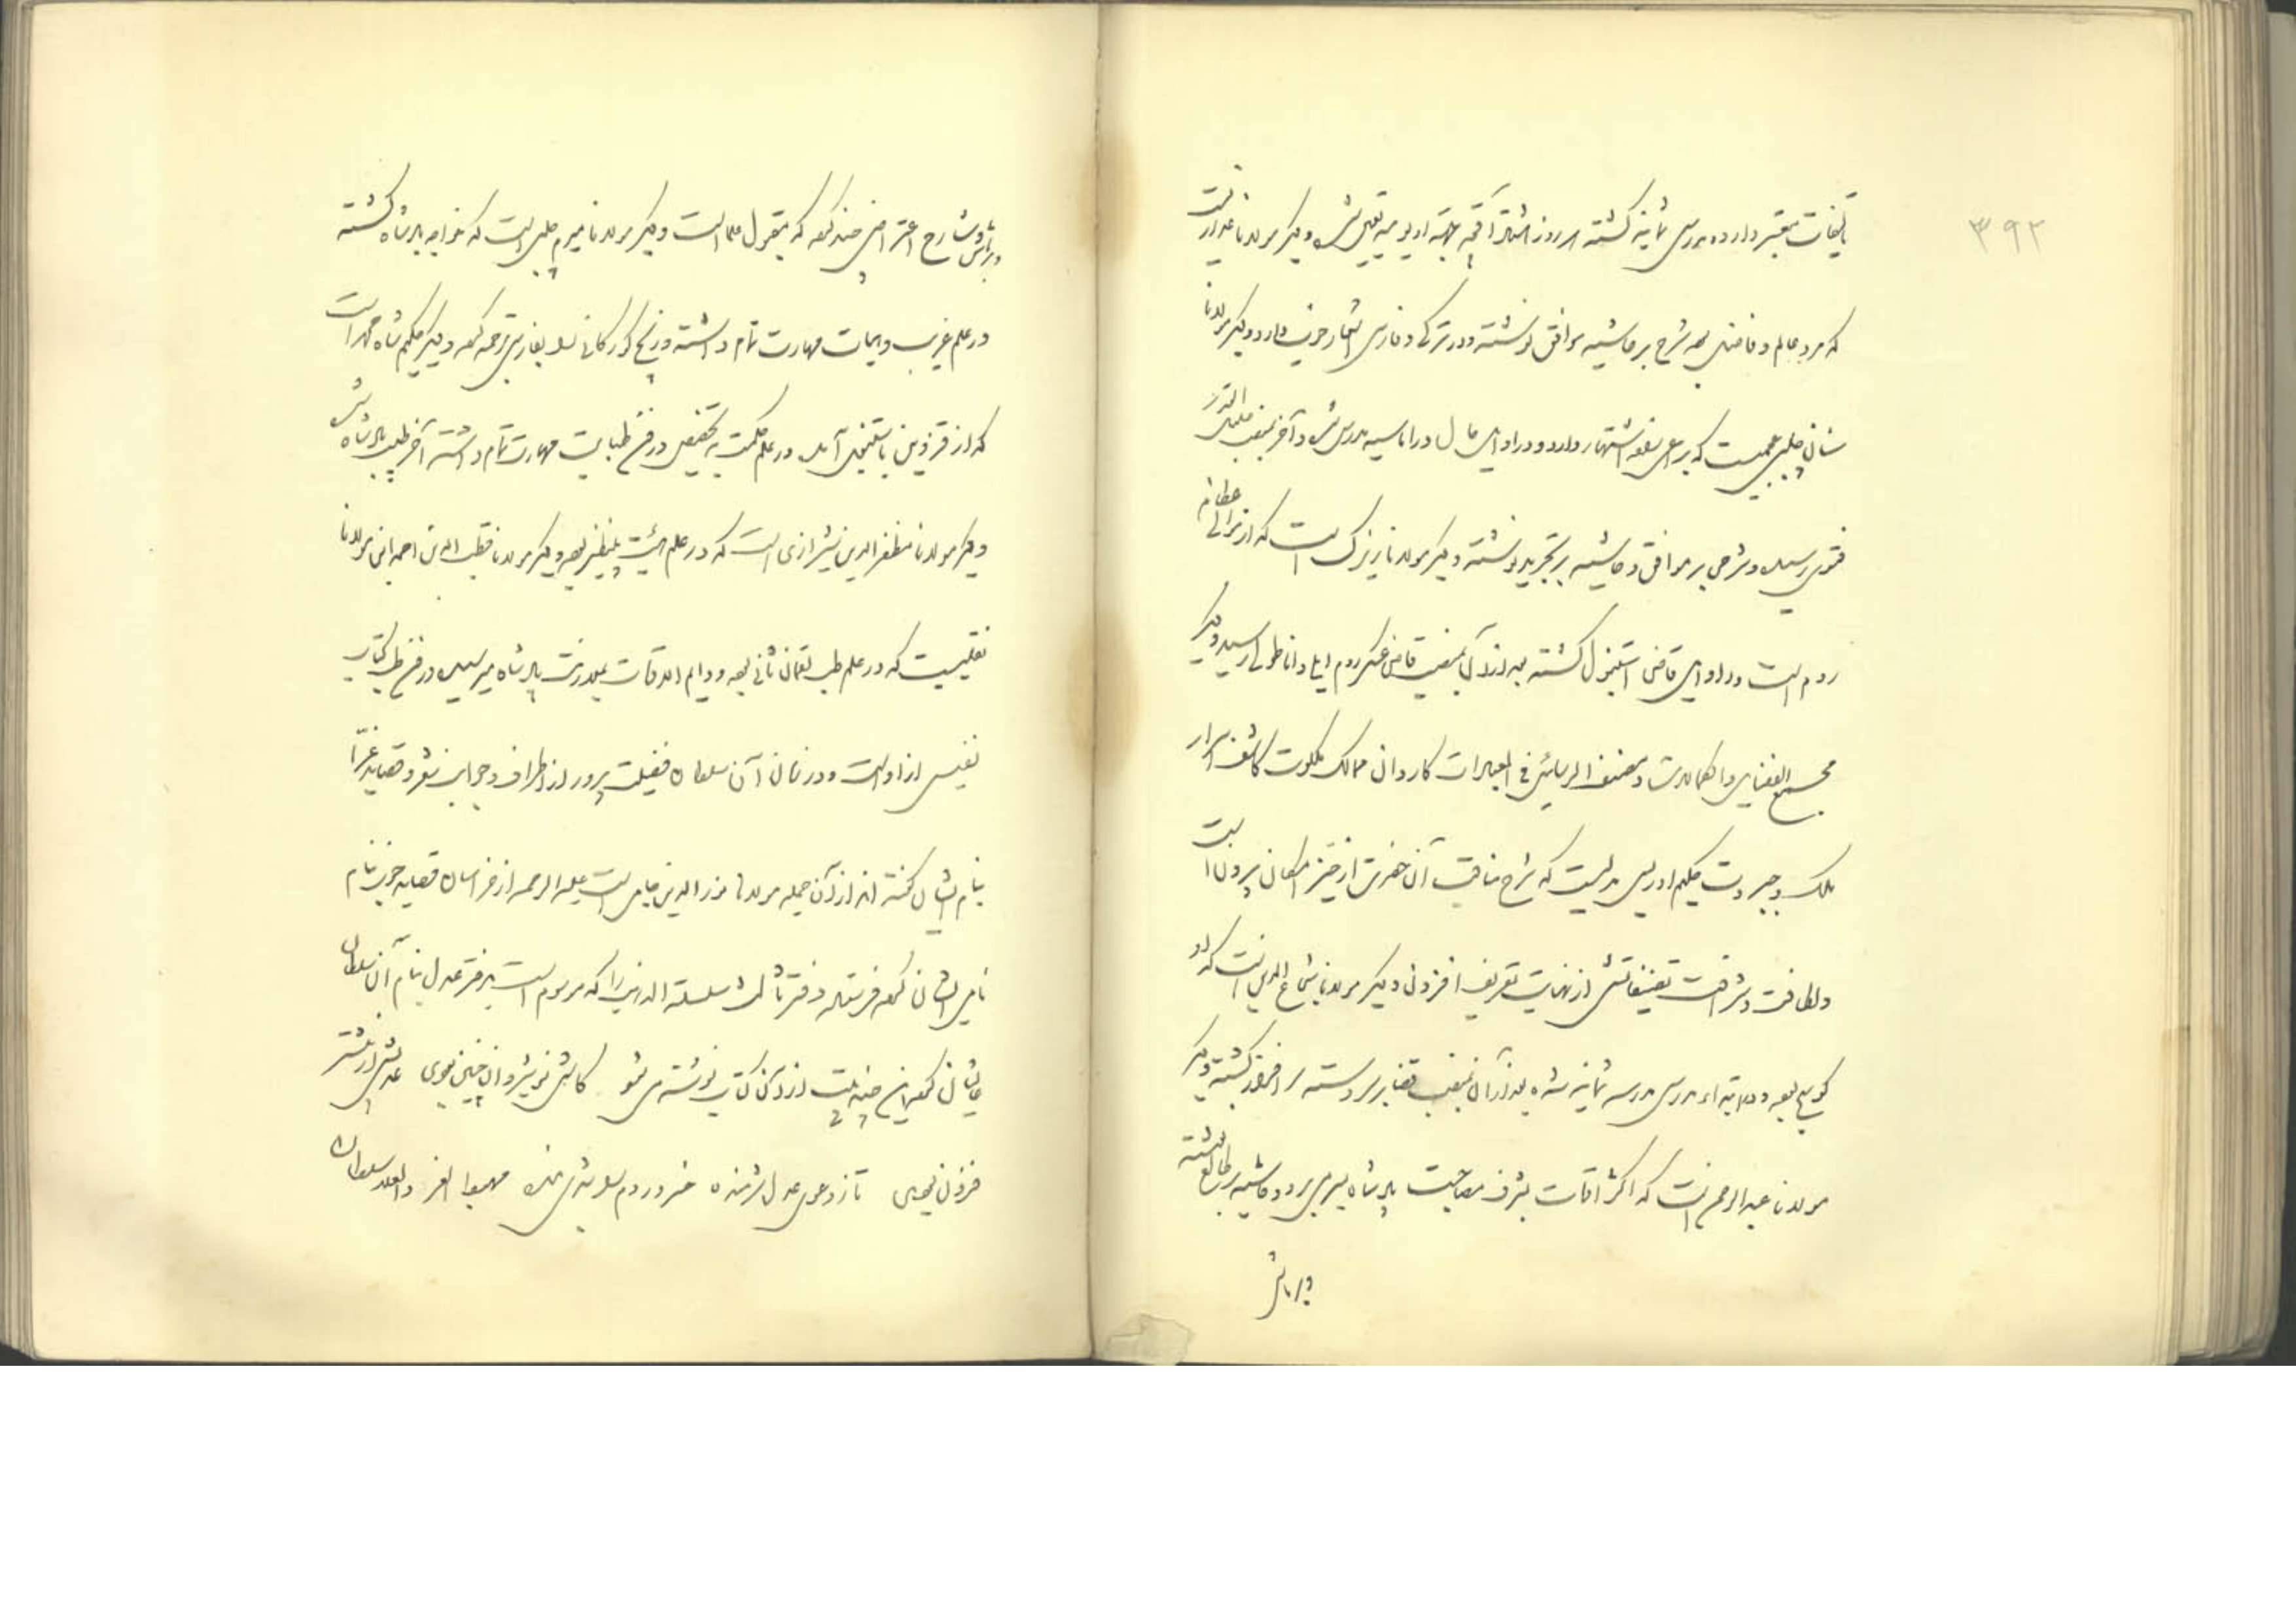 ۳۹۲
تألیفات معتبر دارد و مدرس ثمانیه گشته هر روز هشتاد آقچه جهة او یومیه تعیین شده و دیگر مولانا عذار است
که مرد عالم و فاضل بوده شرح بر حاشیه مواقف نوشته و در ترکی و فارسی اشعار خوب دارد و دیگر مولانا
سنان چلبی عجمیست که اشتهار دارد و در اوایل حال در اماسیه مدرس شده و آخر بمنصب جلیل القدر
فتوی رسیده و شرحی بر مواقف و حاشیه بر تجرید نوشته و دیگر مولانا زیرک است که از موالی عظام
روم است در اوایل قاضی استنبول گشته بعد از آن بمنصب قاضی عسکر روم ایلی و اناطولی رسیده و دیگر
مجمع الفضایل والکمالات و مصنف الرسایل فی العبارات کاردان ممالک ملکوت کاشف اسرار
ملک و جبروت حکیم ادریس بدلیسیست که شرح مناقب آن حضرت از حیز امکان بیرون است
و لطافت و شرافت تصنیفاتش از نهایت تعریف افزون و دیگر مولانا شجاع الدین است که او
کوسج بوده و در ابتداء مدرس مدرسه ثمانیه شده بعد از آن بمنصب قضا سرافراز گشته و دیگر
مولانا عبدالرحمن است که اکثر اوقات بشرف مصاحبت پادشاه بسر می برد و حاشیه بر مطالع نوشته
و بر ماتن
و بر ماتن و شارح اعتراض چند کرده که مقبول علما است و دیگر مولانا میرم چلبی است که خواجه پادشاه گشته
در علم غریب و هیات مهارت تمام داشته و زیج کورکانی را بفارسی ترجمه کرده و دیگر حکیم شاه محمد است
که از قزوین باستنبول آمده در علم حکمت به تخصیص در فن طبابت مهارت تمام داشته آخر طبیب پادشاه شد
و دیگر مولانا مظفرالدین شیرازی است که در علم هیئت بینظیر بوده و دیگر مولانا قطب الدین احمد ابن مولانا
نفیسیست که در علم طب لقمان ثانی بوده و دایم الاوقات بخدمت پادشاه میرسیده و در فن طب کتاب
نفیس از اوست و در زمان آن سلطان فضیلت پرور از اطراف و جوانب شعرا قصاید غرا
بنام ایشان گفته اند از آن جمله مولانا نورالدین جامی است علیه الرحمه از خراسان قصاید خوب بنام
نامی ایشان گفته فرستاده و دفتر ثالث سلسلة الذهب را که موسوم است بدفتر عدل بنام آن سلطان
عالیشان کرده این چند بیت از آن کتاب نوشته می شود کاش نوشیروان چنین بودی عدلش از بیشتر
فزون بودی تا ز دعوی عدل شرمنده خسرو روم را شدی بنده مهبط العز والعلا سلطان